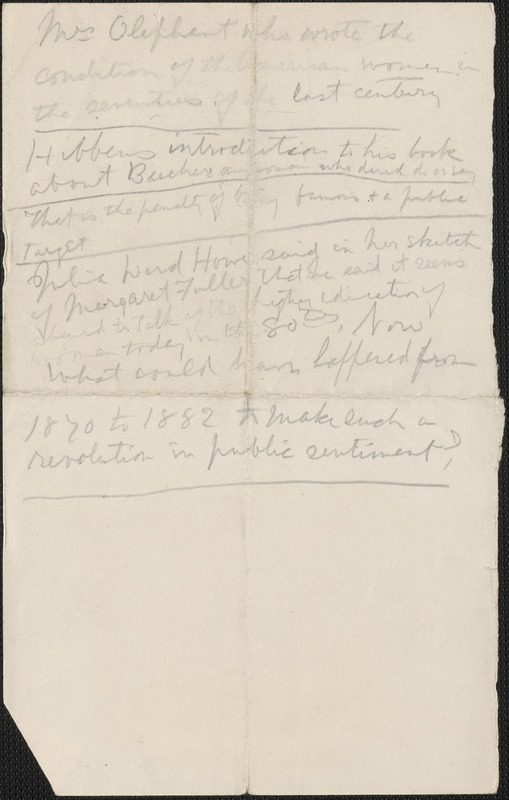 Mrs Oliphant who wrote the
condition of the American women in
the seventies of the last century
Hibbens introduction to his book
about Beecher any woman who dared do or say
That is the penalty of being famous & a public
target
Julia Ward Howe said in her sketch
of Margaret Fuller that she said it seems
absurd to talk of the higher education of
woman today in the 80ties. Now
What could have happened from
1870 to 1882 to make such a
revolution in public sentiment?